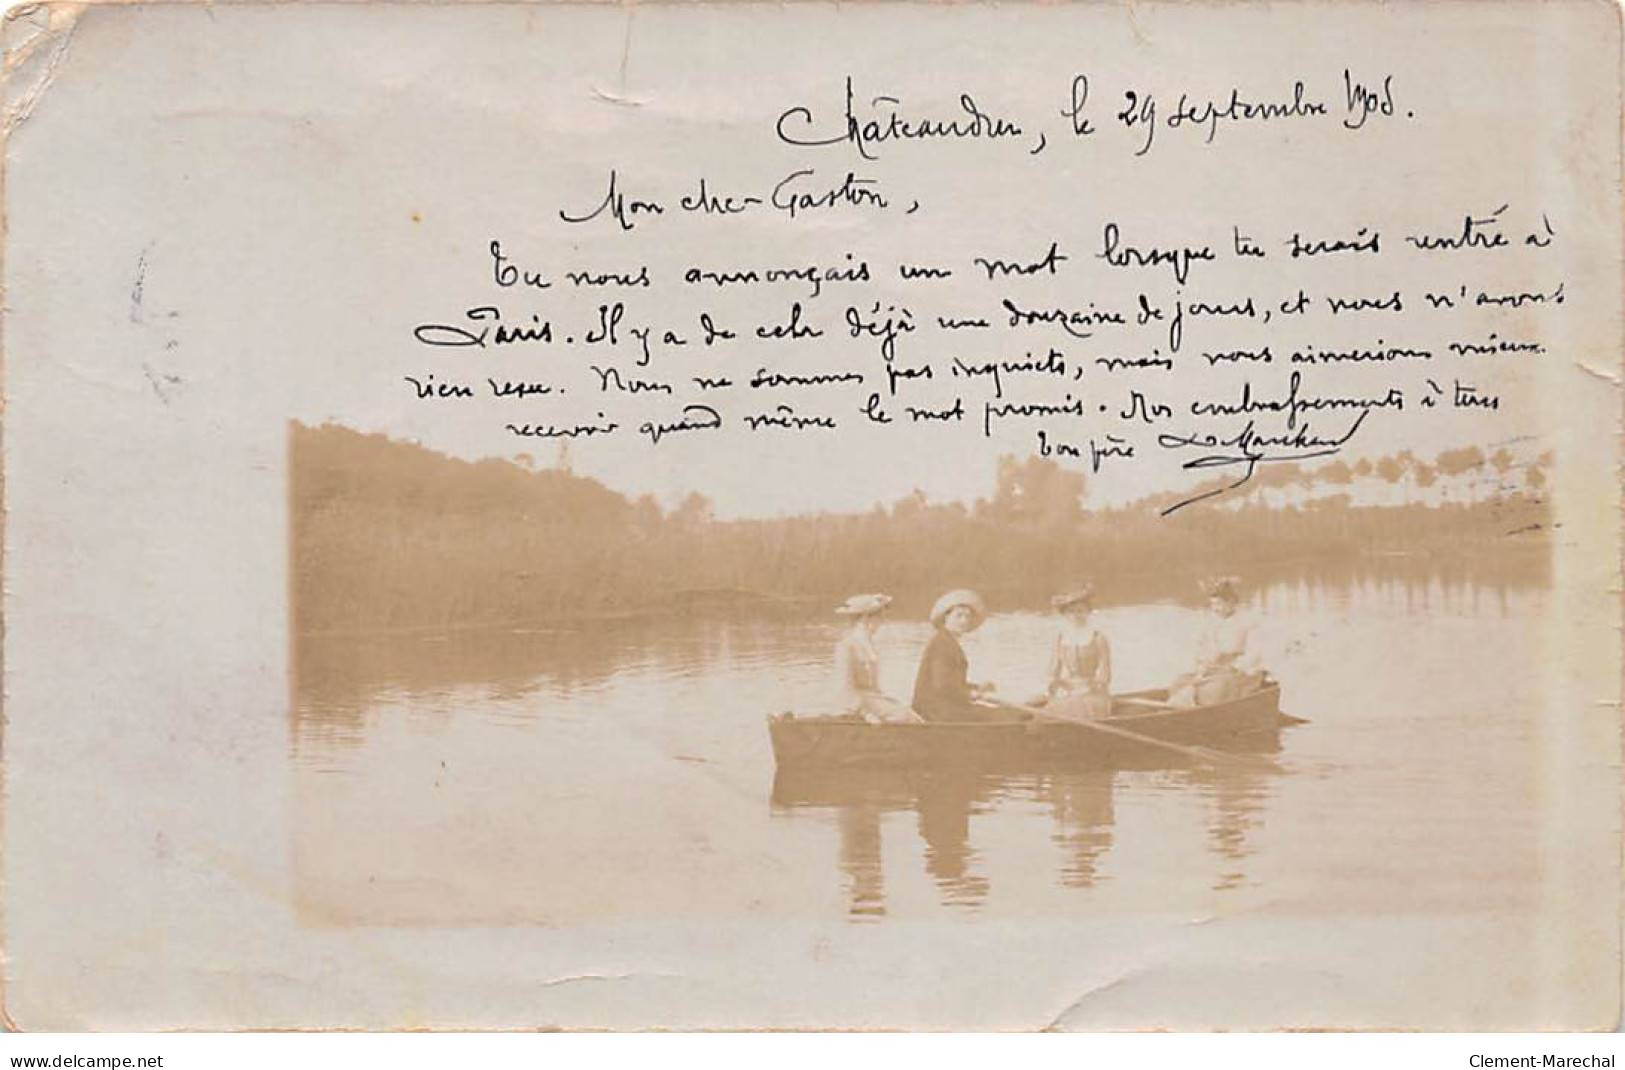 Châteaudun, le 29 septembre 1905.
Mon cher Gaston,
Tu nous annonçais un mot lorsque tu serais rentré à
Paris. Il y a de cela déjà une douzaine de jours, et nous n'avons
rien reçu. Nous ne sommes pas inquiets, mais nous aimerions mieux
recevoir quand même le mot promis. Nos embrassements à tous
Ton père
www.delcampe.net
Clement-Marechal